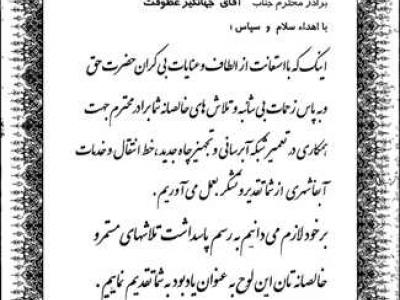 برادر محترم جناب آقای جهانگیر عطوفت
با اهداء سلام و سپاس ؛
اینک که با استعانت از الطاف و عنایات بی کران حضرت حق
و به پاس زحمات بی شائبه و تلاش های خالصانه شما برادر محترم جهت
همکاری در تعمیر شبکه آبرسانی و تجهیز چاه جدید، خط انتقال و خدمات
آبفا شهری از شما تقدیر و تشکر بعمل می آوریم .
بر خود لازم می دانیم به رسم پاسداشت تلاشهای مستمر و
خالصانه تان این لوح به عنوان یادبود به شما تقدیم نماییم .